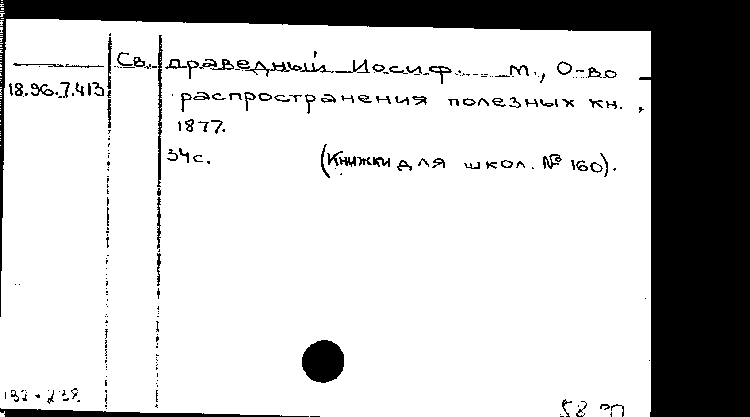 Св. праведный Иосиф. М., О-во
18.96.7.413
распространения полезных кн.,
1877.
34с. (Книжки для школ. № 160).
58